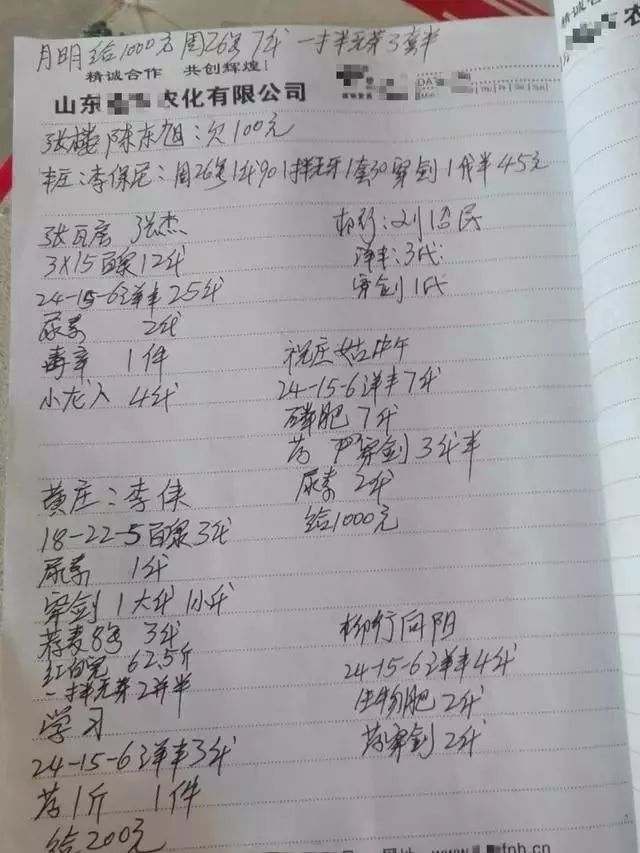 月明给1000元 周26号7代 一寸半无芽3套半
精诚合作 共创辉煌!
山东 农化有限公司
精诚合
农
张楼陈东旭:欠100元
李保尼:周26号1代90 1寸半无牙1套30 穿剑1代半45元
张瓦房 张杰
3X15百泉12代
24-15-6洋丰25代
尿素 2代
毒辛 1件
小龙人 4代
柳行:刘 民
洋丰:3代
穿剑1代
祝庄姑
24-15-6洋丰7代
磷肥 7代
苭 穿剑3代半
尿素 2代
给1000元
黄庄:李侠
18-22-5百泉3代
尿素 1代
穿剑1大代1小代
荞麦8号 3代
62.5斤
一寸半无芽2 半
学习
24-15-6洋丰3代
苭1斤 1件
给200元
柳行向阴
24-15-6洋丰4代
生物肥2代
苭穿剑2代
网址
fnh.cn